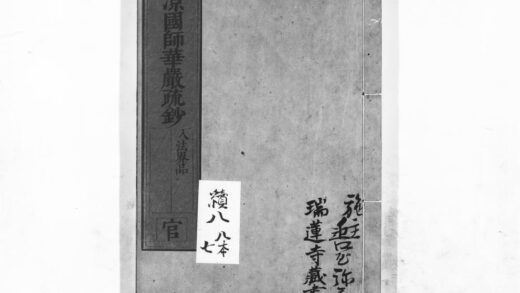 涼國師華嚴疏鈔
入法界品
官
續八
八本
七
施主
瑞蓮寺藏書